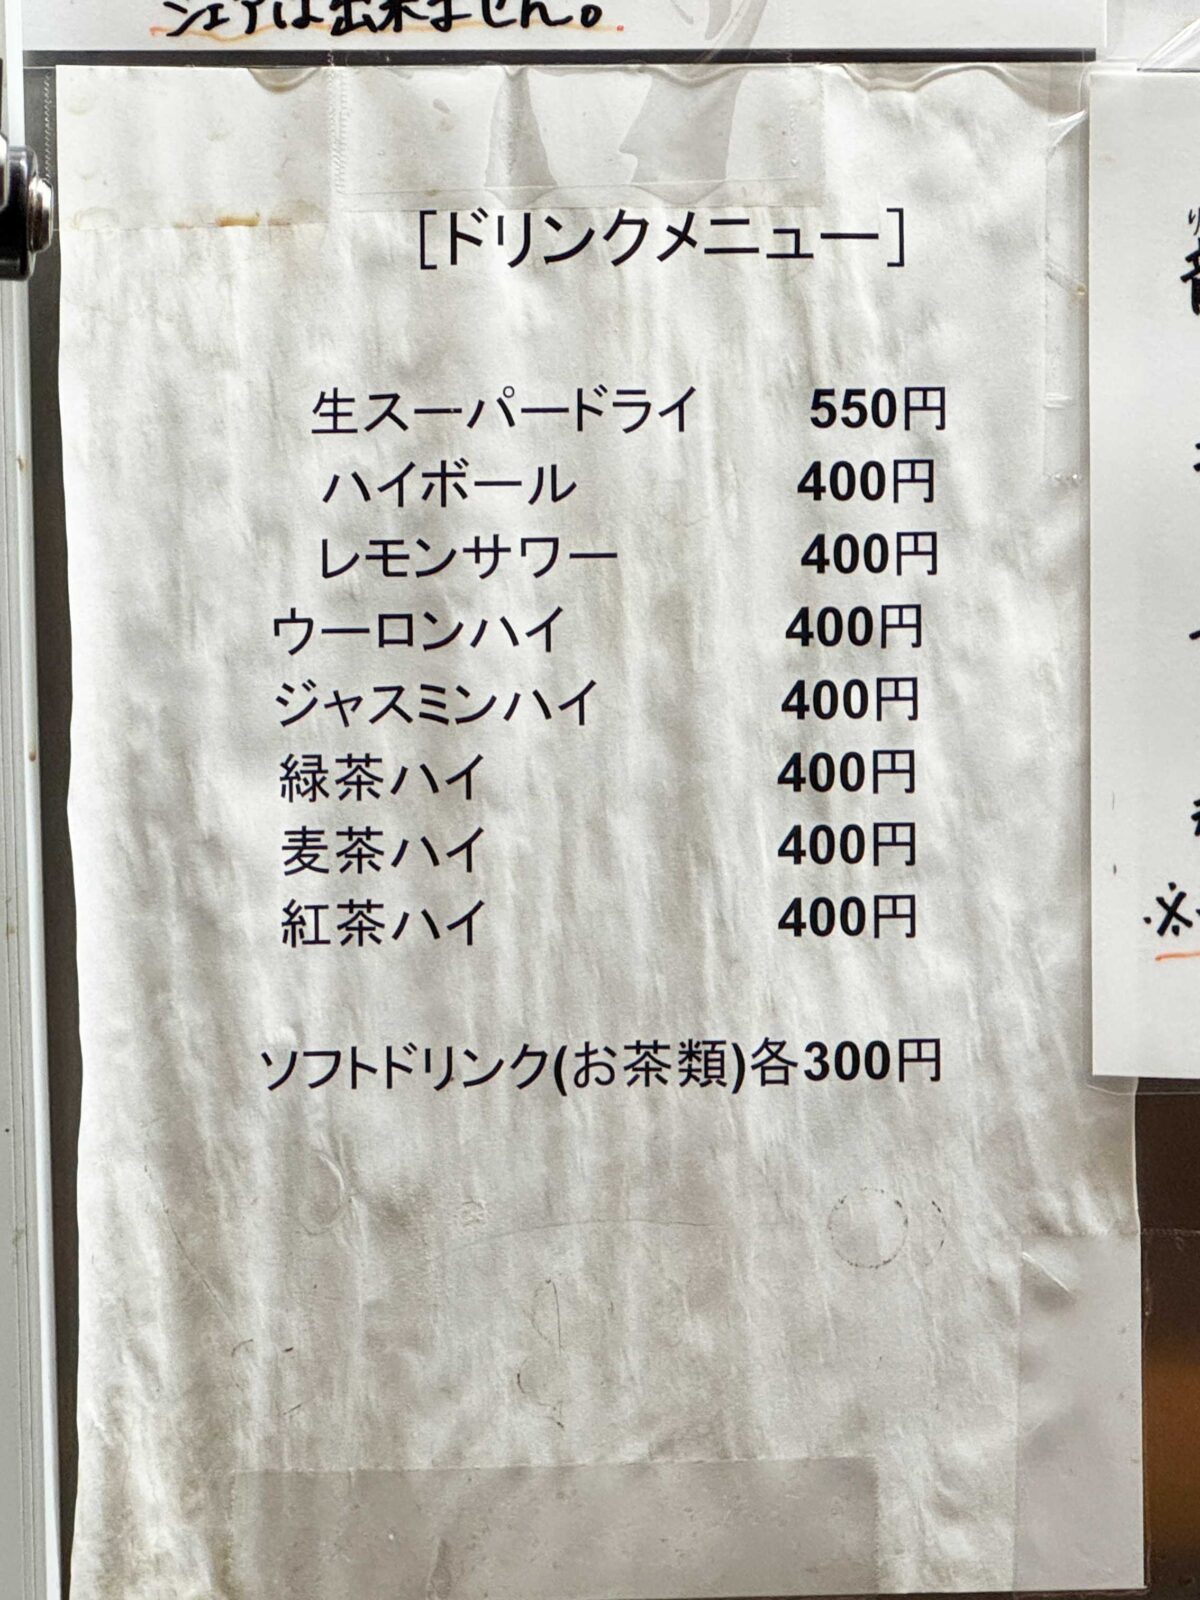 シェアは出来ません。
[ドリンクメニュー]
生スーパードライ 550円
ハイボール 400円
レモンサワー 400円
ウーロンハイ 400円
ジャスミンハイ 400円
緑茶ハイ 400円
麦茶ハイ 400円
紅茶ハイ 400円
ソフトドリンク(お茶類)各300円
※